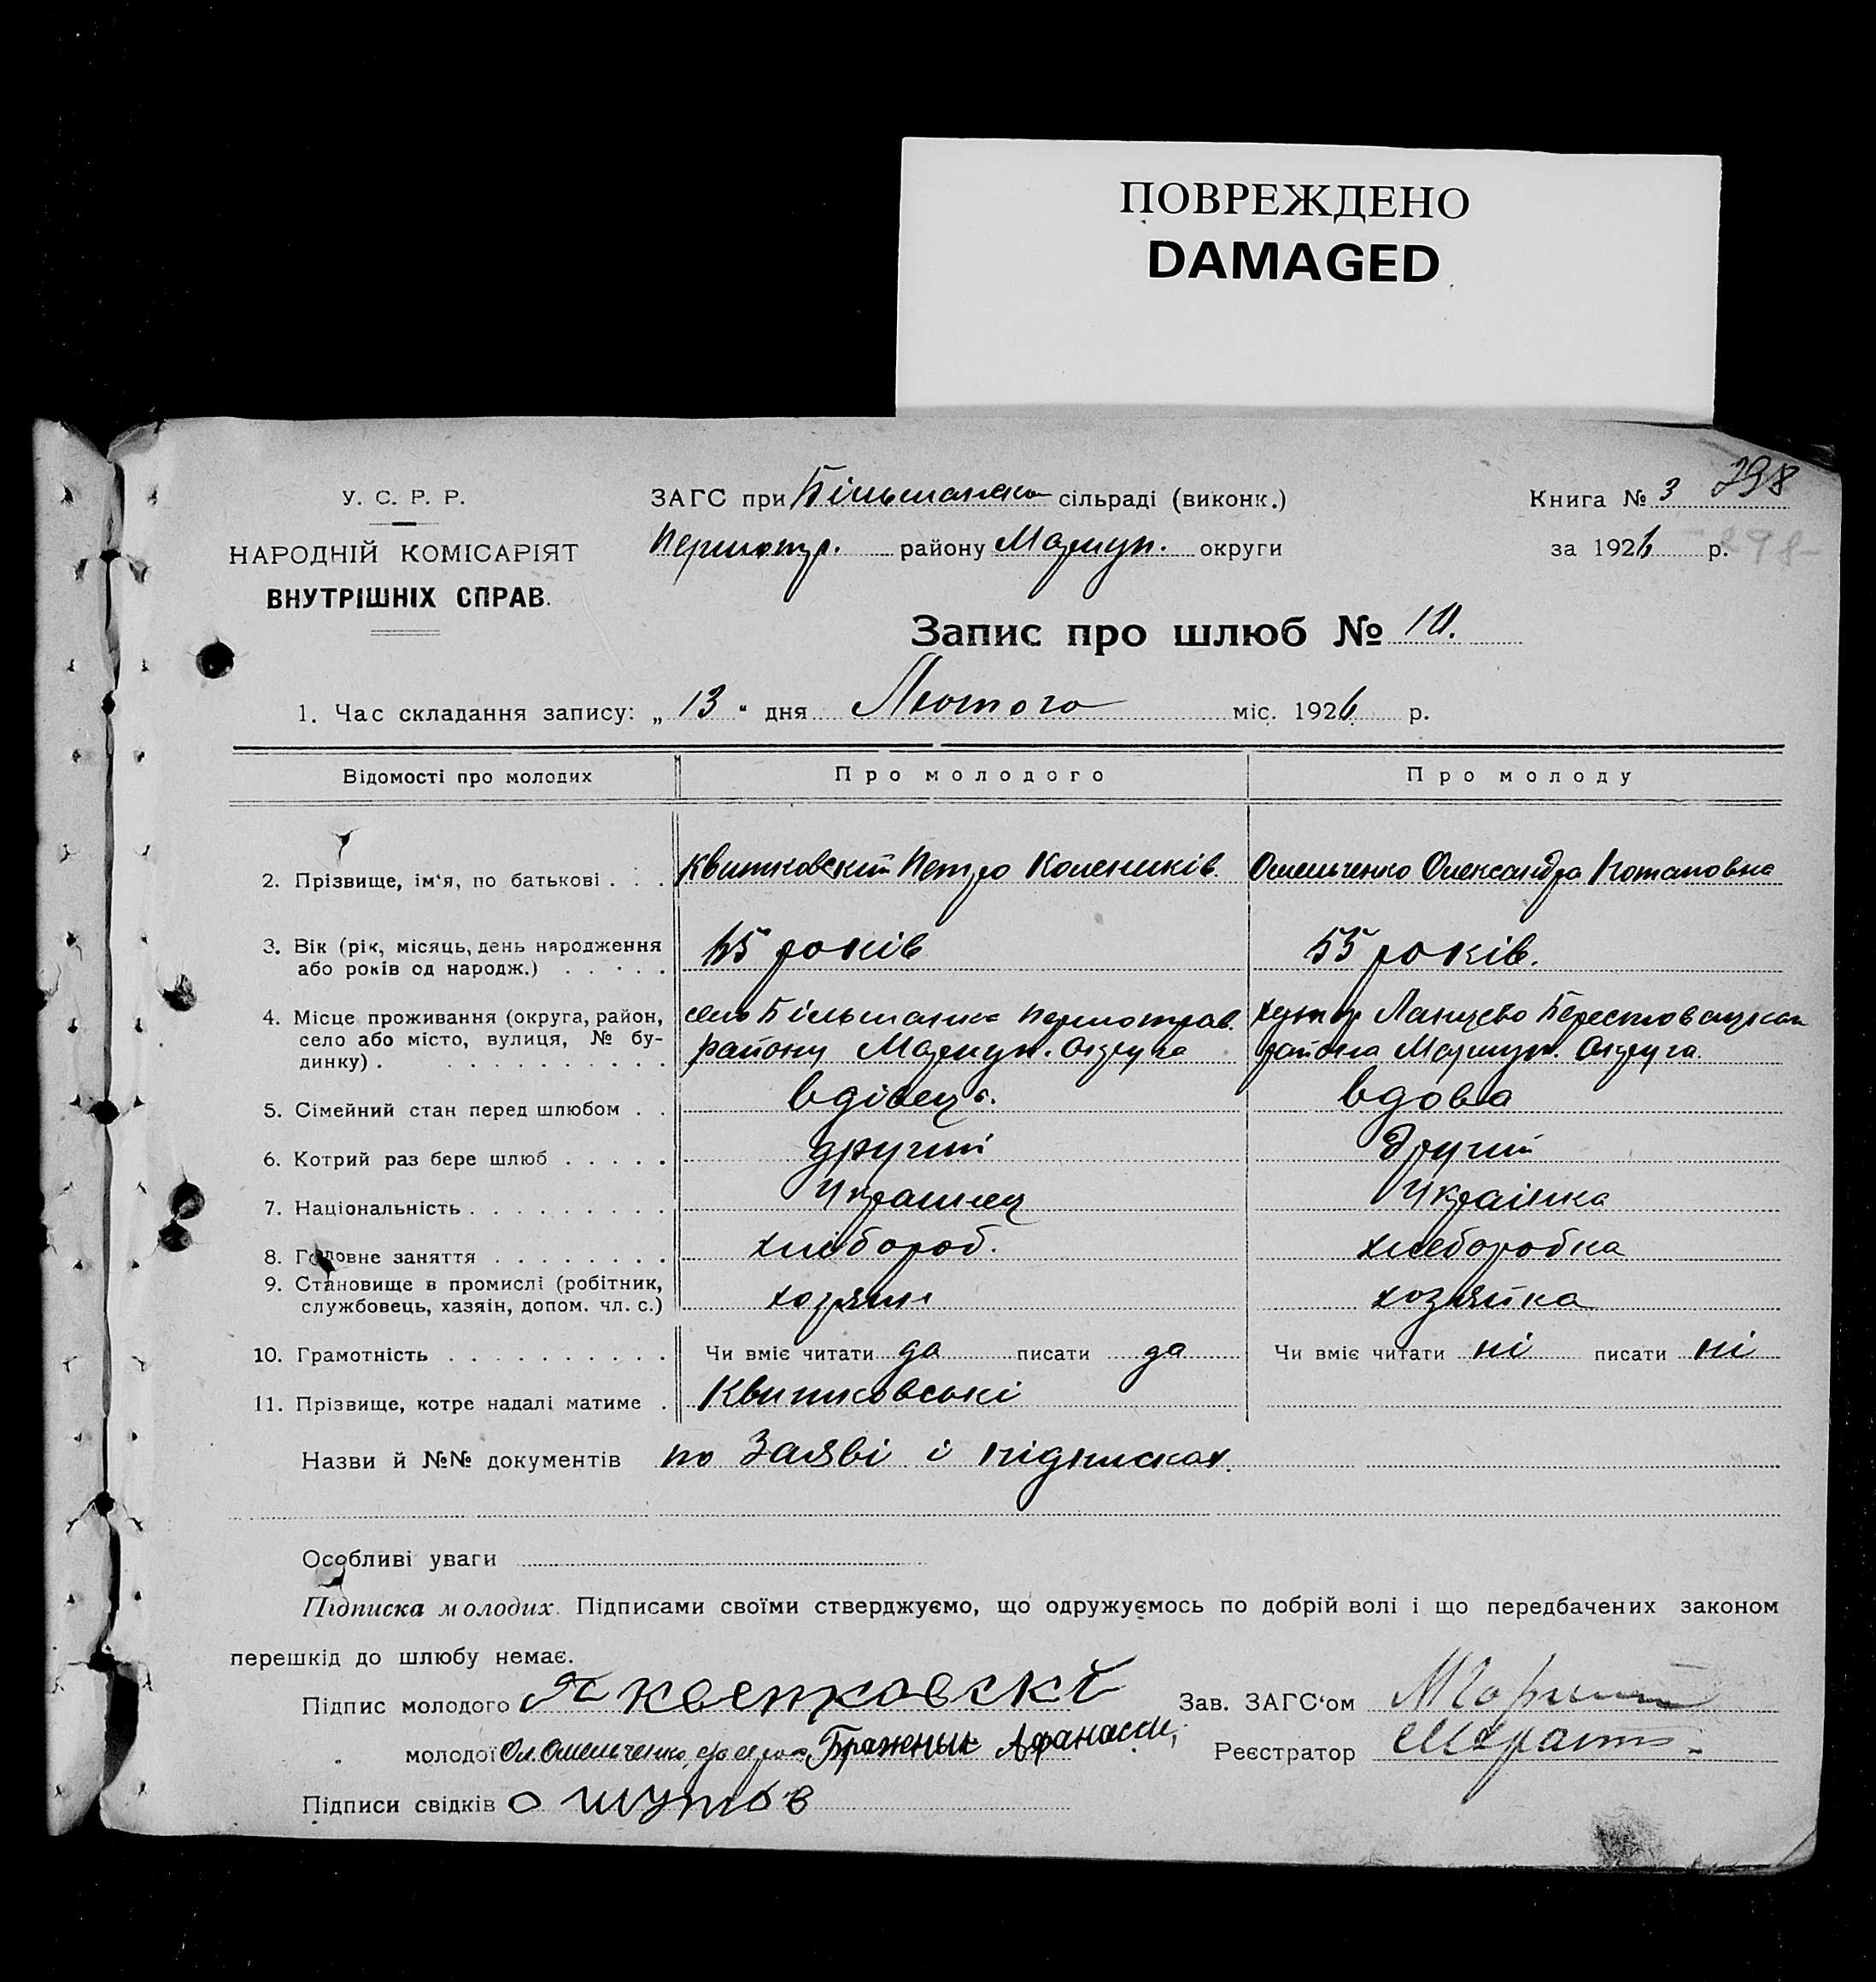 ПОВРЕЖДЕНО
DAMAGED
У. С. Р. Р.
НАРОДНІЙ КОМІСАРІЯТ
ВНУТРІШНІХ СПРАВ.
ЗАГС при сільраді (виконк.)
району Маріуп. округи
Книга № 3
298
за 1926 р.
298
Запис про шлюб № 10.
1. Час складання запису: „ 13 " дня Лютого міс. 1926 р.
Відомості про молодих Про молодого Про молоду
2. Прізвище, ім'я, по батькові . . . Квитковский Петро Омельченко Олександра Потаповна
3. Вік (рік, місяць, день народження
або років од народж.) . . . . . років 55 років.
4. Місце проживання (округа, район,
село або місто, вулиця, № бу-
динку) . . . . . . . . . . .
село
району Маріуп. Округа
хутір
района Маріуп. Округа
5. Сімейний стан перед шлюбом . . вдівець. вдова
6. Котрий раз бере шлюб . . . . . другий другий
7. Національність . . . . . . . . . Украинец Україінка
8. Головне заняття . . . . . . . . хлібороб. хлеборобка
9. Становище в промислі (робітник,
службовець, хазяін, допом. чл. с.) хозяин хозяйка
10. Грамотність . . . . . . . . . . Чи вміє читати да писати да Чи вміє читати ні писати ні
11. Прізвище, котре надалі матиме . Квитковські
Назви й №№ документів по Заяві і підписках.
Особливі уваги
Підписка молодих. Підписами своїми стверджуємо, що одружуємось по добрій волі і що передбачених законом
перешкід до шлюбу немає.
Підпис молодого Зав. ЗАГС'ом
" молодої Ол. Омельченко Бражнык Афанасий Реєстратор
Підписи свідків